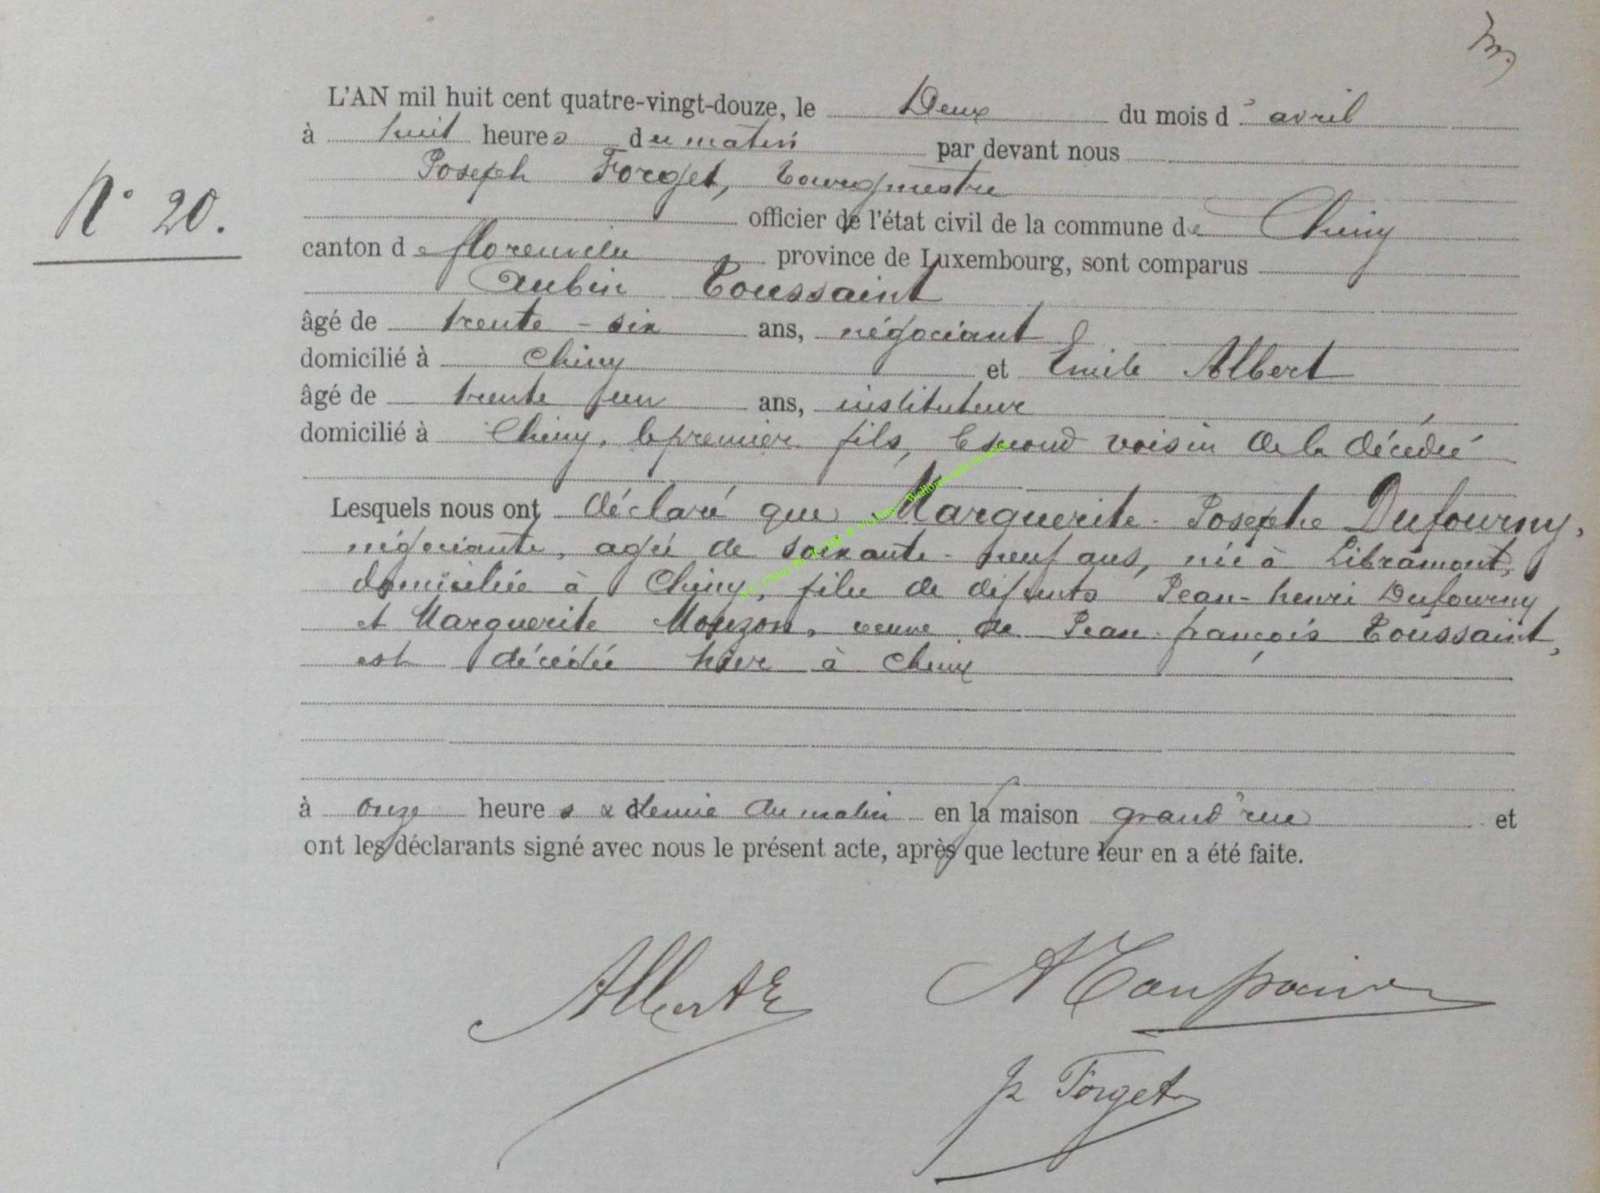 L'AN mil huit cent quatre-vingt-douze, le Deux du mois d' avril
à huit heures du matin par devant nous
Joseph Forget, bourgmestre
N° 20.
officier de l'état civil de la commune de Chiny
canton de florenville province de Luxembourg, sont comparus
Aubin Toussaint
âgé de trente-six ans, négociant
domicilié à Chiny et Emile Albert
âgé de trente un ans, instituteur
domicilié à Chiny, le premier fils, le second voisin de la décédée
Lesquels nous ont déclaré que Marguerite-Josèphe Dufourny,
négociante, agée de soixante-neuf ans, née à Libramont,
domiciliée à Chiny, fille de défunts Jean-henri Dufourny
et Marguerite Mouzon, veuve de Jean-françois Toussaint,
est décédée hier à Chiny
à onze heures & demie du matin en la maison grand'rue et
ont les déclarants signé avec nous le présent acte, après que lecture leur en a été faite.
Albert E A Toussaint
J Forget